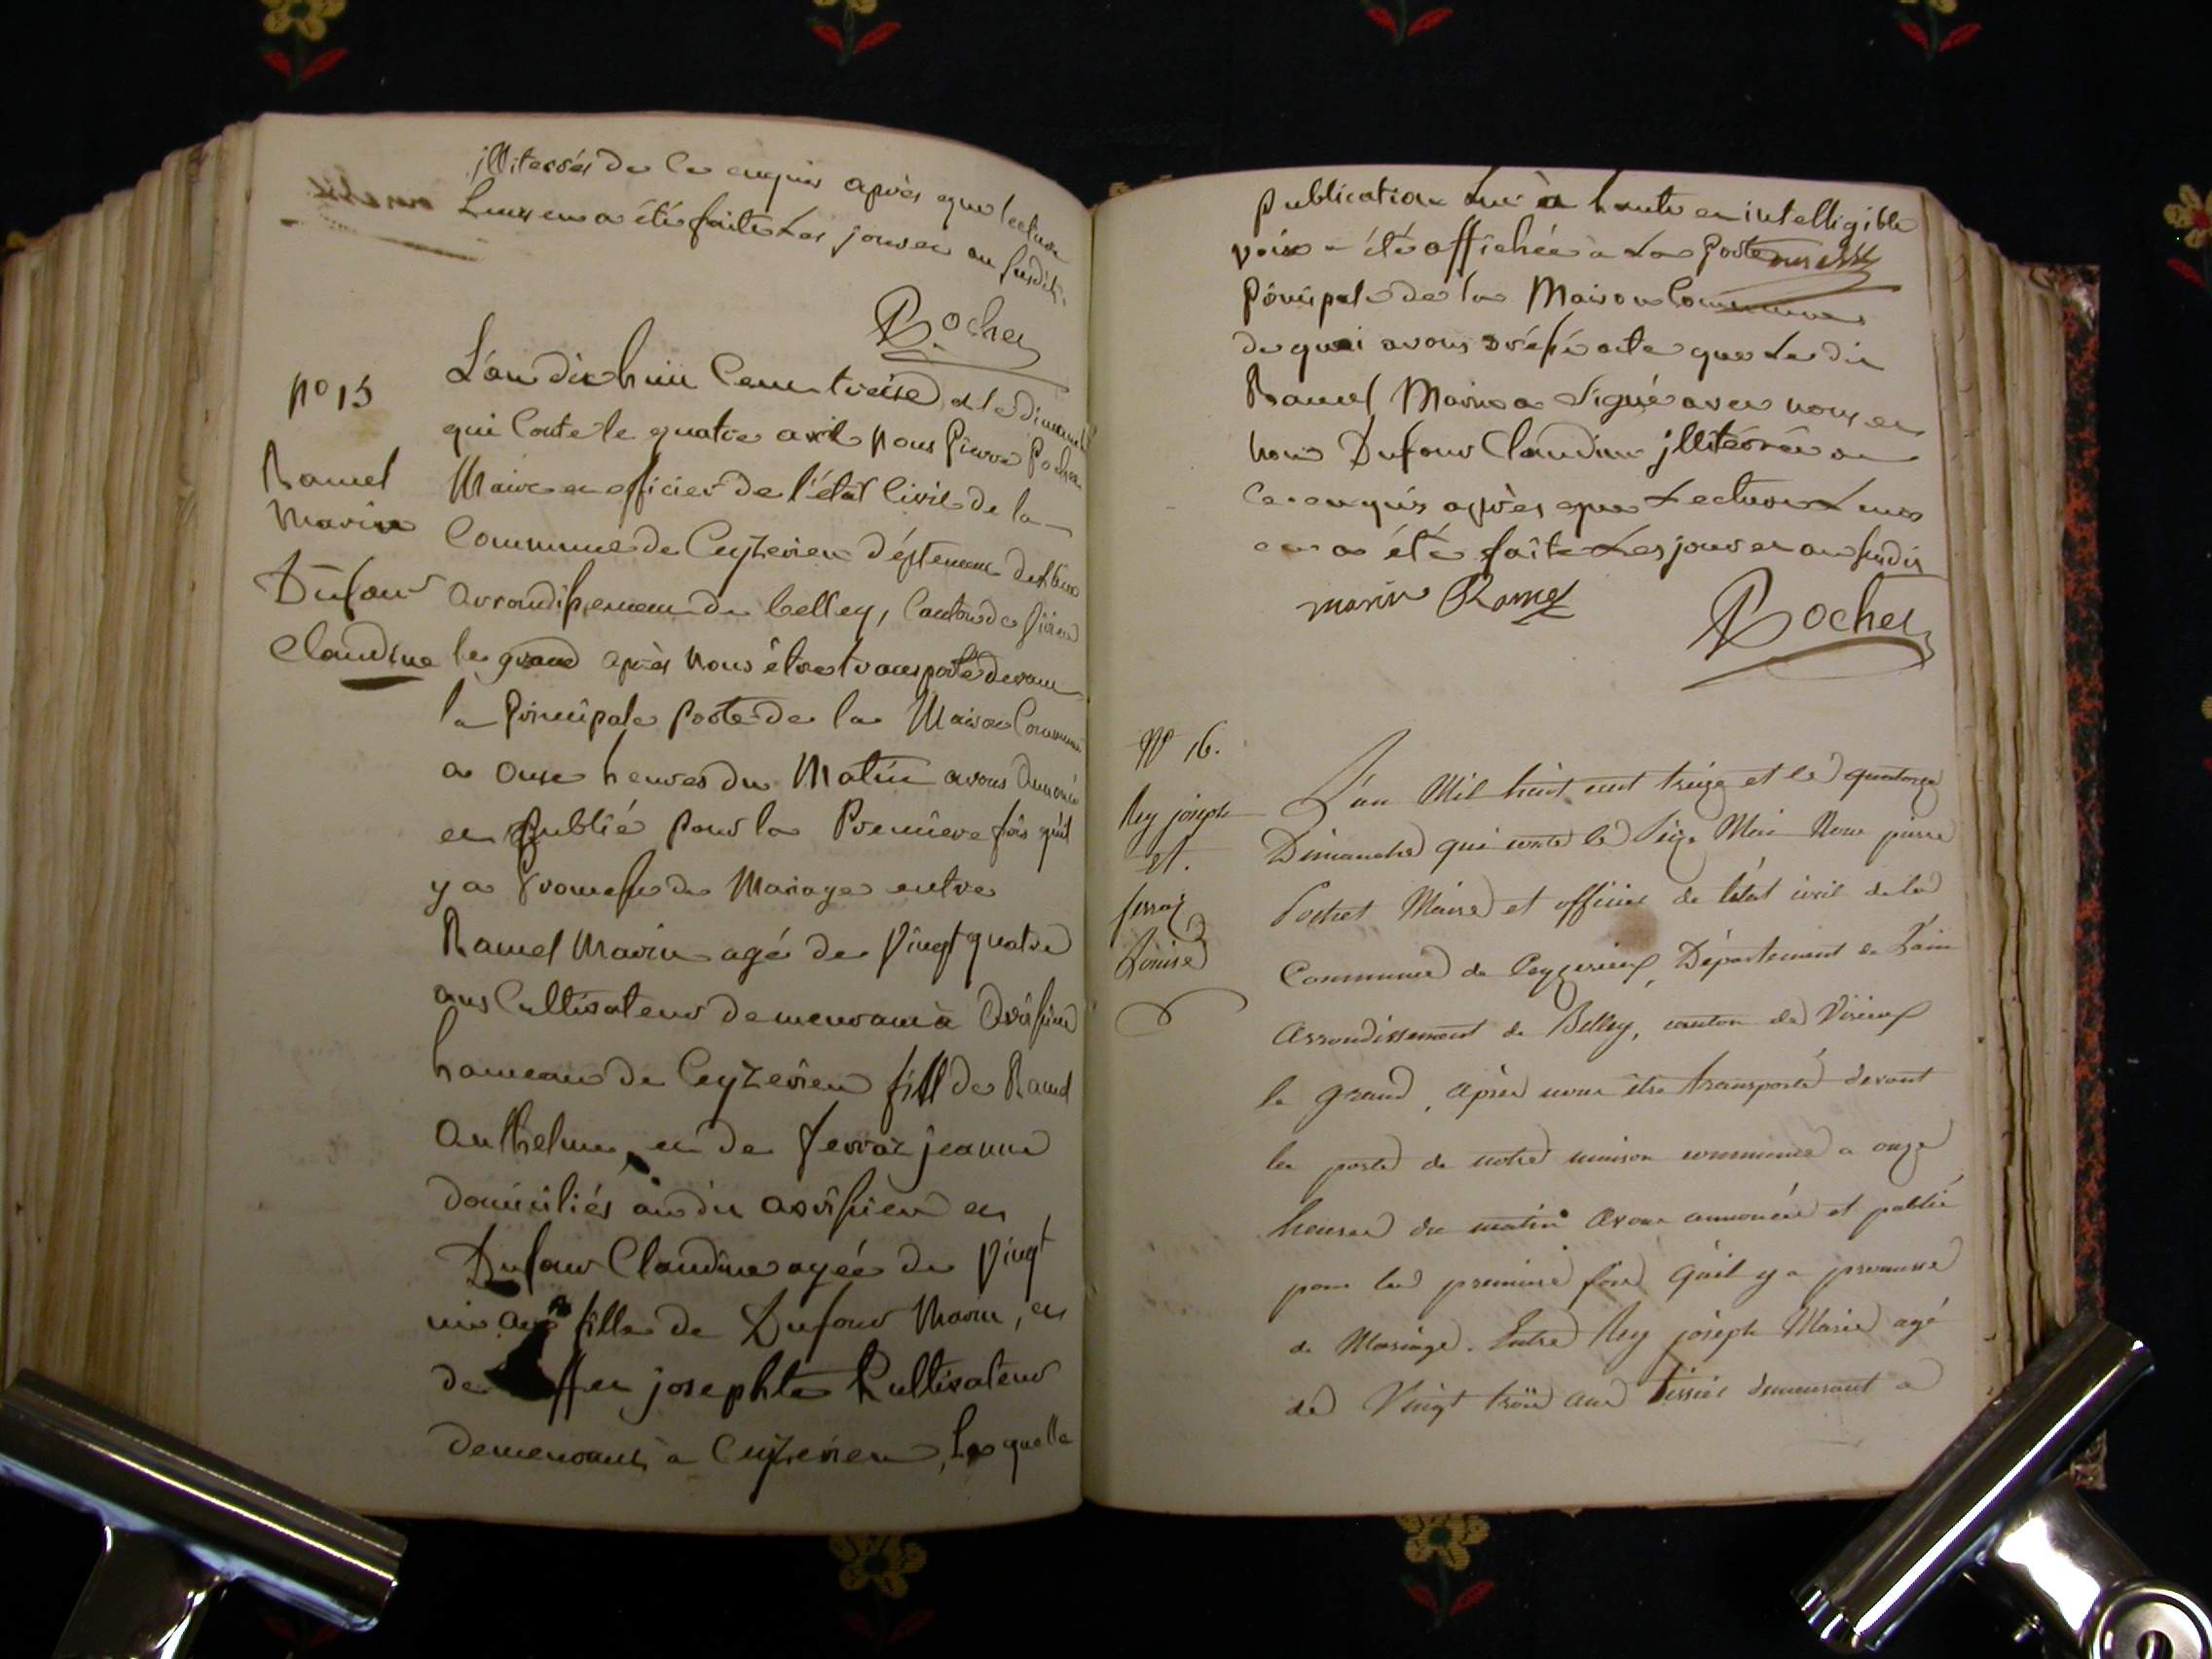 illiterés de ce enquis après que lecture
Leurs en a été faite Les jour et an susdit.
Pochet
n° 15
Ramel
Marin
Dufour
Claudine
L'an dix huit Cent treise et le dimanche
qui Conte le quatre avril nous Pierre Pochet
Maire et officier de l'état Civil de la
Commune de Ceyzerieu département de
arrondissement de belley, Canton de Virieu
le grand après nous être transporté devant
la Principale Porte de la Maison Commune
a onse heures du Matin avons Annoncé
et Publié Pour la Premiere fois quil
y a Promesse de Mariage entre
Ramel Marin agé de Vingt quatre
ans Cultivateur demeurant à Avrissieu
hameau de Ceyzerieu fill de Ramel
Anthelme et de ferraz jeanne
domiciliés au dit avrissieu et
Dufour Claudine agée de Vingt
ans fille de Dufour Marin, et
de josephte Cultivateur
demeurants à Ceyzerieu, Laquelle
Publication lue à haute et intelligible
voix a été affichée à La Porte
Principale de la Maison Commune
de quoi avons acte que Le dit
Ramel Marin a Signé avec nous et
non Dufour Claudine illiterée
Ce enquis après que Lecture Leurs
en a été faite Les jour et an susdit
marin Ramel
Pochet
N° 16.
Rey joseph
et.
ferraz
Louise
L'an Mil huit cent treize et le quatorze
Dimanche qui conte le Seize Mai Nous pierre
Pochet Maire et officier de létat civil de la
Commune de Ceyzerieux, Département de L'ain
Arrondissement de Belley, canton de Virieux
le grand, après nous être transporté devant
la porte de notre maison commune a onze
heures du matin Avons annoncé et publié
pour la premiere fois Quil y a promesse
de Mariage. Entre Rey joseph Marie agé
de Vingt trois ans Tissier demeurant a